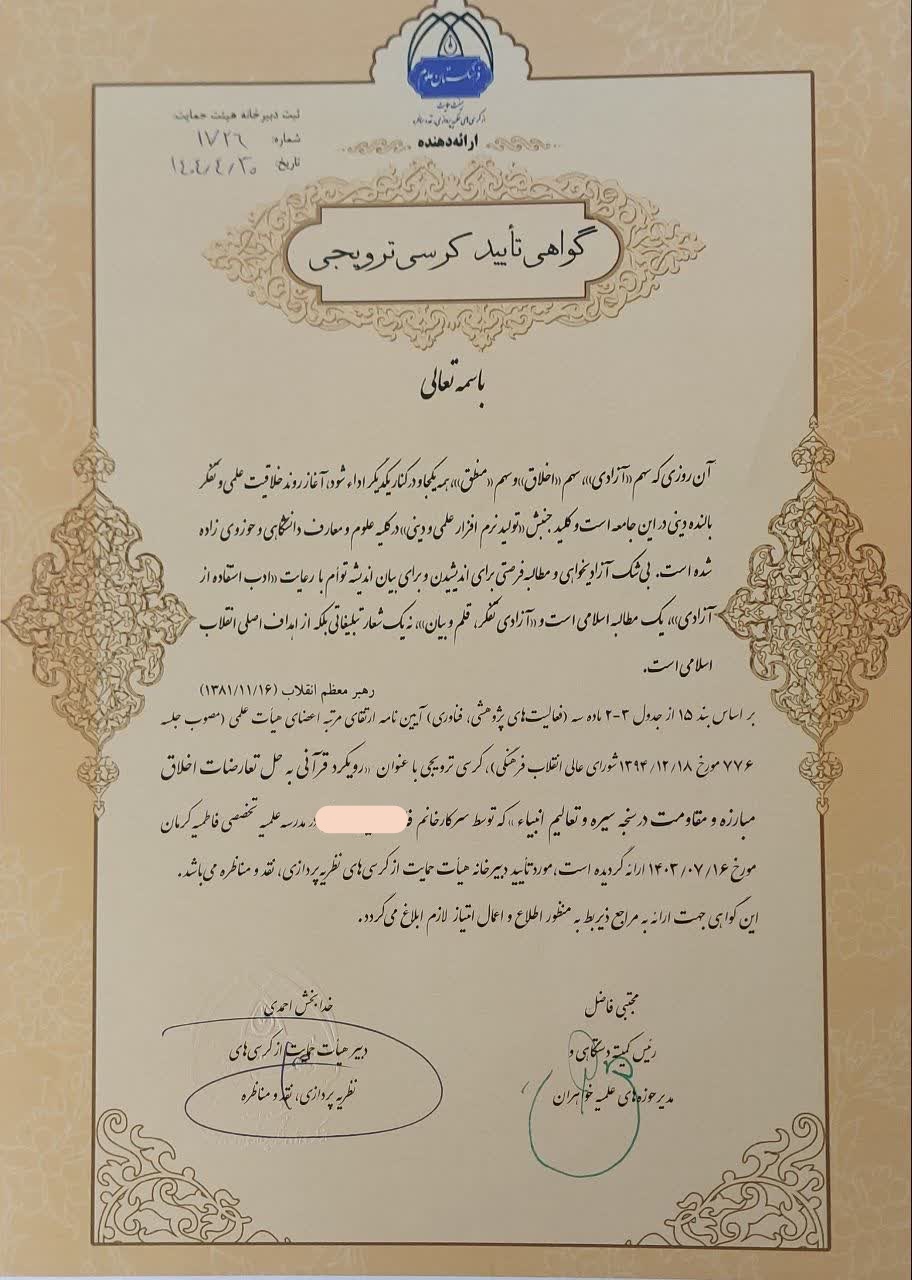 فرهنگستان علوم
هیئت حمایت
از کرسی‌های نظریه‌پردازی، نقد و مناظره
ارائه‌دهنده
ثبت دبیرخانه هیئت حمایت:
شماره: ۱۷۲۶
تاریخ: ۱۴۰۴/۴/۳۰
گواهی تأیید کرسی ترویجی
باسمه تعالی
آن روزی که سهم «آزادی»، سهم «اخلاق» و سهم «منطق»، همه یکجا و در کنار یکدیگر اداء شود، آغاز روند خلاقیت علمی و تفکر
بالنده دینی در این جامعه است و کلید جنبش «تولید نرم افزار علمی و دینی» در کلیه علوم و معارف دانشگاهی و حوزوی زاده
شده است. بی‌شک آزادیخواهی و مطالبه فرصتی برای اندیشیدن و برای بیان اندیشه توأم با رعایت «ادب استفاده از
آزادی»، یک مطالبه اسلامی است و «آزادی تفکر، قلم و بیان»، نه یک شعار تبلیغاتی بلکه از اهداف اصلی انقلاب
اسلامی است.
رهبر معظم انقلاب (۱۳۸۱/۱۱/۱۶)
بر اساس بند ۱۵ از جدول ۳-۲ ماده سه (فعالیت‌های پژوهشی، فناوری) آیین نامه ارتقای مرتبه اعضای هیأت علمی (مصوب جلسه
۷۷۶ مورخ ۱۳۹۴/۱۲/۱۸ شورای عالی انقلاب فرهنگی)، کرسی ترویجی با عنوان «رویکرد قرآنی به حل تعارضات اخلاق
مبارزه و مقاومت در سیره و تعالیم انبیاء» که توسط سرکار خانم در مدرسه علمیه تخصصی فاطمیه کرمان
مورخ ۱۴۰۳/۰۷/۱۶ ارائه گردیده است، مورد تأیید دبیرخانه هیأت حمایت از کرسی‌های نظریه‌پردازی، نقد و مناظره می‌باشد.
این گواهی جهت ارائه به مراجع ذیربط به منظور اطلاع و اعمال امتیاز لازم ابلاغ می‌گردد.
مجتبی فاضل
رئیس کمیته دستگاهی و
مدیر حوزه‌های علمیه خواهران
خدابخش احمدی
دبیر هیأت حمایت از کرسی‌های
نظریه پردازی، نقد و مناظره